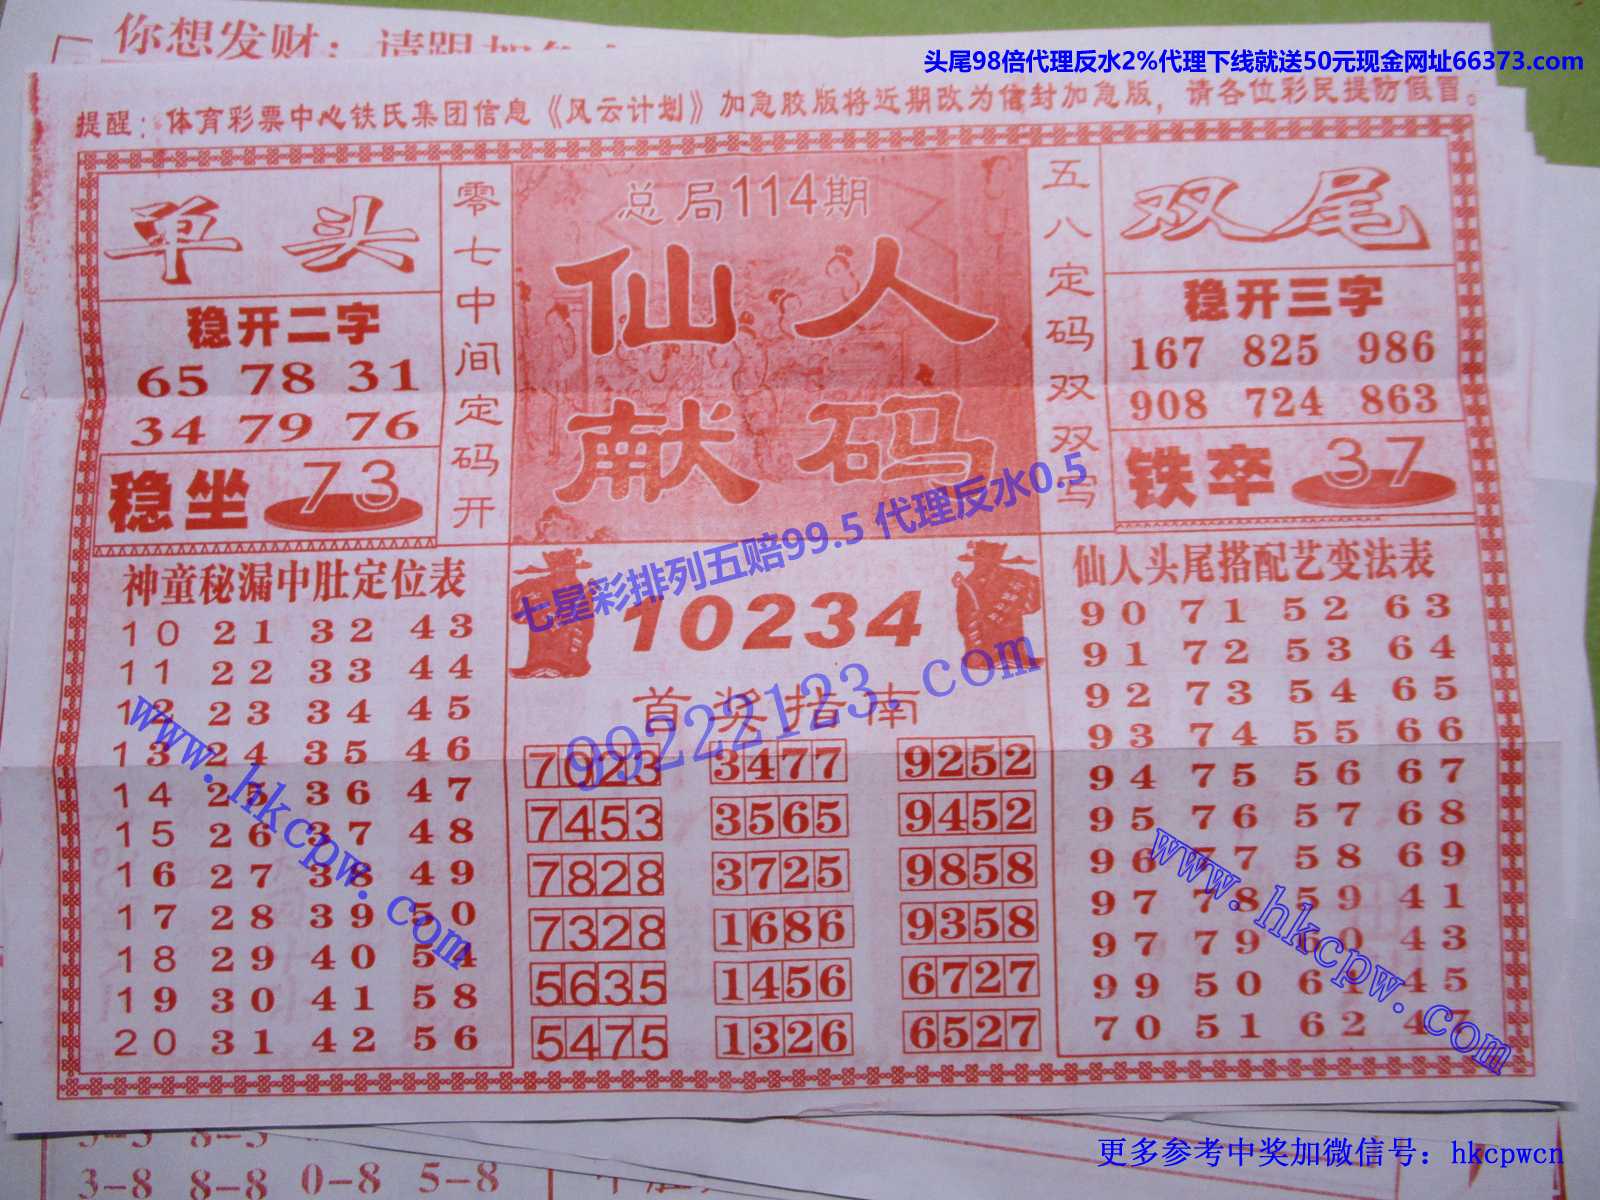 你想发财：请跟
头尾98倍代理反水2%代理下线就送50元现金网址66373.com
提醒：体育彩票中心铁氏集团信息《风云计划》加急胶版将近期改为信封加急版，请各位彩民提防假冒。
单头
稳开二字
65 78 31
34 79 76
稳坐 73
零七中间定码开
总局114期
仙人
献码
五八定码双双写
双尾
稳开三字
167 825 986
908 724 863
铁卒 37
七星彩排列五赔99.5 代理反水0.5
神童秘漏中肚定位表
10 21 32 43
11 22 33 44
12 23 34 45
13 24 35 46
14 25 36 47
15 26 37 48
16 27 38 49
17 28 39 50
18 29 40 54
19 30 41 58
20 31 42 56
www.hkcpw.com
10234
99222123.com
首奖指南
7023 3477 9252
7453 3565 9452
7828 3725 9858
7328 1686 9358
5635 1456 6727
5475 1326 6527
仙人头尾搭配艺变法表
90 71 52 63
91 72 53 64
92 73 54 65
93 74 55 66
94 75 56 67
95 76 57 68
96 77 58 69
97 78 59 41
97 79 60 43
99 50 61 45
70 51 62 47
www.hkcpw.com
3-8 8-8 0-8 5-8
更多参考中奖加微信号：hkcpwcn